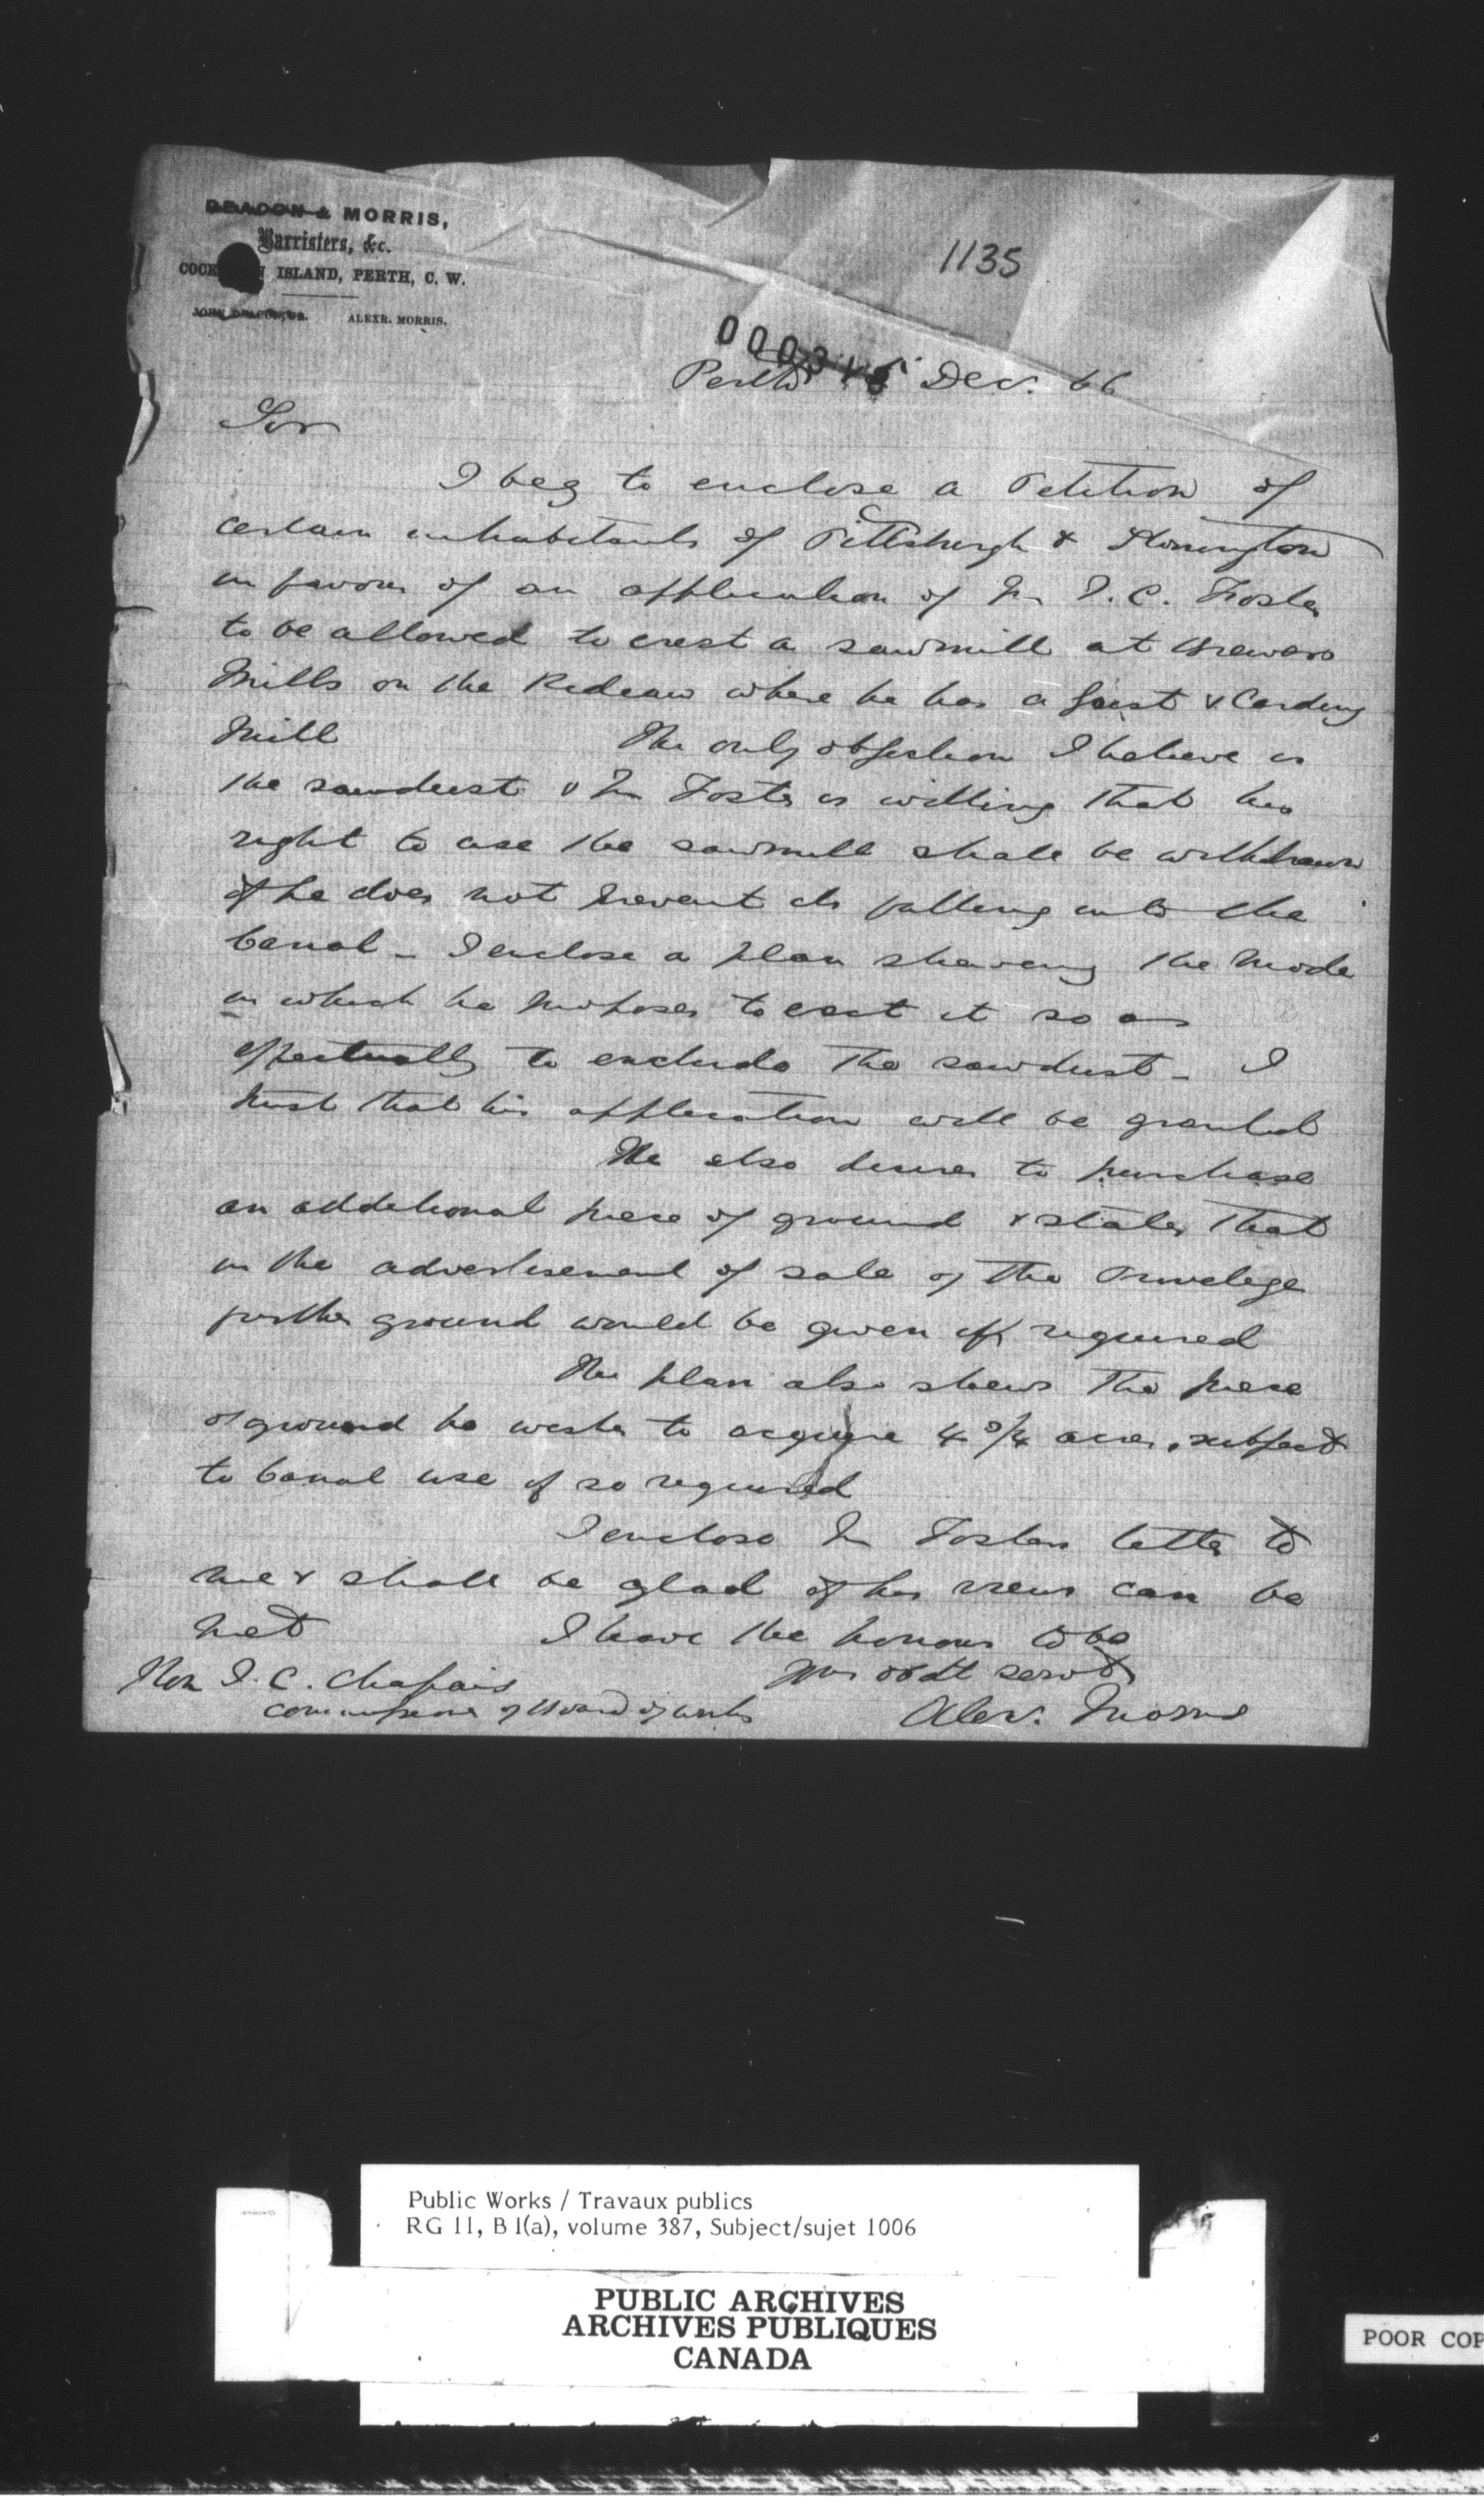 DEACON & MORRIS,
Barristers, &c.
COCK ISLAND, PERTH, C. W.
ALEXR. MORRIS.
1135
Perth Dec. 66
Sir
I beg to enclose a Petition of
certain inhabitants of Pittsburgh & Storrington
in favour of an application of Mr J. C. Foster
to be allowed to erect a sawmill at Brewers
Mills on the Rideau where he has a Grist & Carding
Mill The only objection I believe is
the sawdust & Mr Foster is willing that his
right to use the sawmill shall be withdrawn
if he does not prevent its falling into the
Canal - I enclose a plan shewing the mode
in which he proposes to erect it so as
effectually to exclude the sawdust - I
trust that his application will be granted
He also desires to purchase
an additional piece of ground & states that
in the advertisement of sale of the Privelege
further ground would be given if required
The plan also shews the piece
of ground he wishes to acquire 4 3/4 acres, subject
to Canal use if so required
I enclose Mr Fosters letter to
me & shall be glad if his views can be
met I have the honour to be
Your obdt servt
Hon J. C. Chapais
Commissioner of Board of Works
Alex. Morris
Public Works / Travaux publics
RG 11, B 1(a), volume 387, Subject/sujet 1006
PUBLIC ARCHIVES
ARCHIVES PUBLIQUES
CANADA
POOR COP